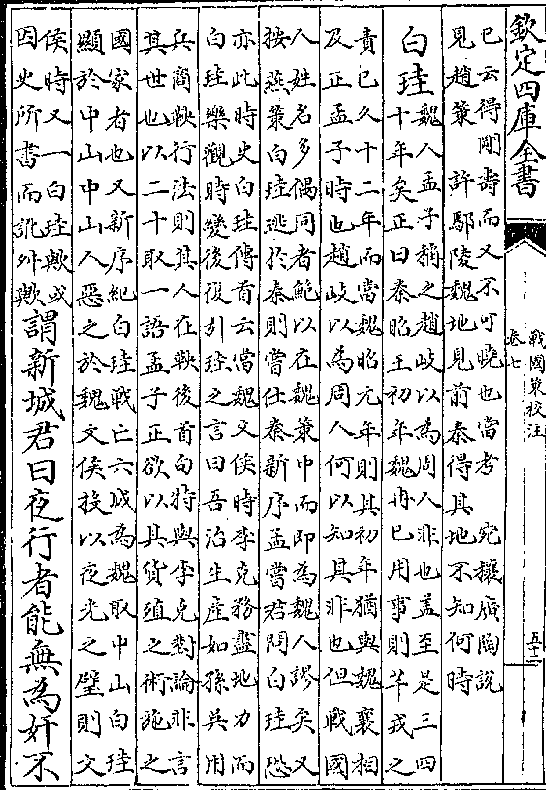 欽定四庫全書
戰國策校注
卷七
已云得剛壽而又不可曉也當考 宛穰膺陶說
見趙策 許鄢陵魏地見前秦得其地不知何時
白珪
魏人孟子稱之趙岐以為周人非也蓋至是三四
十年矣正曰秦昭王初年魏冉已用事則芊戎之
責已久十二年而當魏昭元年則其初年猶與魏襄相
及正孟子時也趙岐以為周人何以知其非也但戰國
人姓名多偶同者鮑以在魏策中而即為魏人謬矣又
按燕策白珪逃於秦則嘗仕秦新序孟嘗君問白珪恐
亦此時史白珪傳首云當魏文侯時李克務盡地力而
白珪樂觀時變後復引珪之言曰吾治生產如孫吳用
兵商鞅行法則其人在鞅後首句特與李克對論非言
其世也以二十取一語孟子正欲以其貨殖之術施之
國家者也又新序紀白珪戰亡六城為魏取中山白珪
顯於中山中山人惡之於魏文侯投以夜光之璧則文
侯時又一白珪歟或
因史所書而訛舛歟
謂新城君曰夜行者能無為奸不